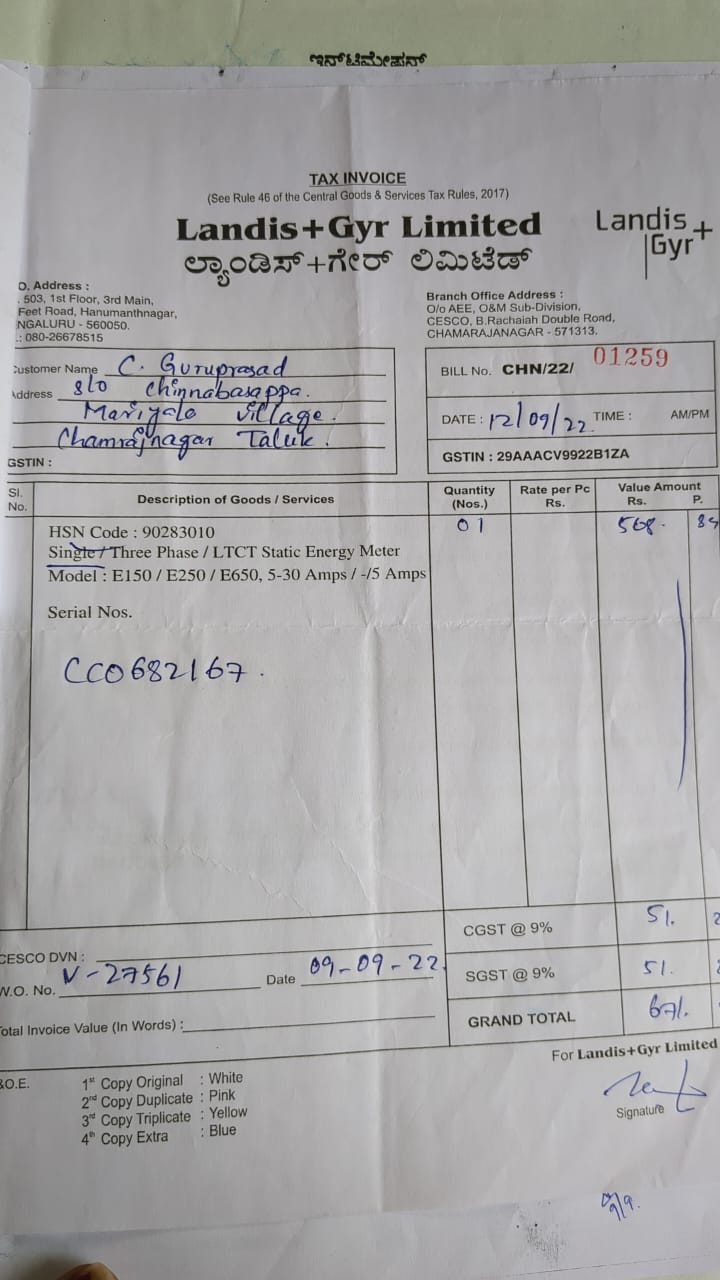 ಇನ್‌ಟಿಮೇಷನ್
TAX INVOICE
(See Rule 46 of the Central Goods & Services Tax Rules, 2017)
Landis+Gyr Limited
ಲ್ಯಾಂಡಿಸ್+ಗೇರ್ ಲಿಮಿಟೆಡ್
Landis+
Gyr
O. Address :
503, 1st Floor, 3rd Main,
Feet Road, Hanumanthnagar,
NGALURU - 560050.
.: 080-26678515
Branch Office Address :
O/o AEE, O&M Sub-Division,
CESCO, B.Rachaiah Double Rond,
CHAMARAJANAGAR - 571313.
Customer Name C. Guruprasad
Address S/o Chinnabasappa.
Mariyala village.
Chamrajnagar Taluk.
GSTIN :
BILL No. CHN/22/ 01259
DATE : 12/09/22 TIME : AM/PM
GSTIN : 29AAACV9922B1ZA
Sl. No. Description of Goods / Services Quantity (Nos.) Rate per Pc Rs. Value Amount Rs. P.
HSN Code : 90283010 01 568.
Single / Three Phase / LTCT Static Energy Meter
Model : E150 / E250 / E650, 5-30 Amps / -/5 Amps
Serial Nos.
CC0682167.
CGST @ 9% 51.
CESCO DVN :
W.O. No. N-27561 Date 09-09-22
SGST @ 9% 51.
Total Invoice Value (In Words) :
GRAND TOTAL 671.
For Landis+Gyr Limited
&O.E.
1st Copy Original : White
2nd Copy Duplicate : Pink
3rd Copy Triplicate : Yellow
4th Copy Extra : Blue
Signature